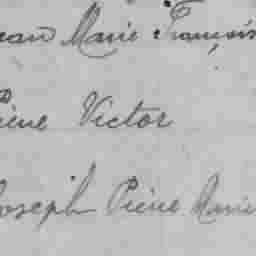 Jean Marie François
Pierre Victor
Joseph Pierre Marie